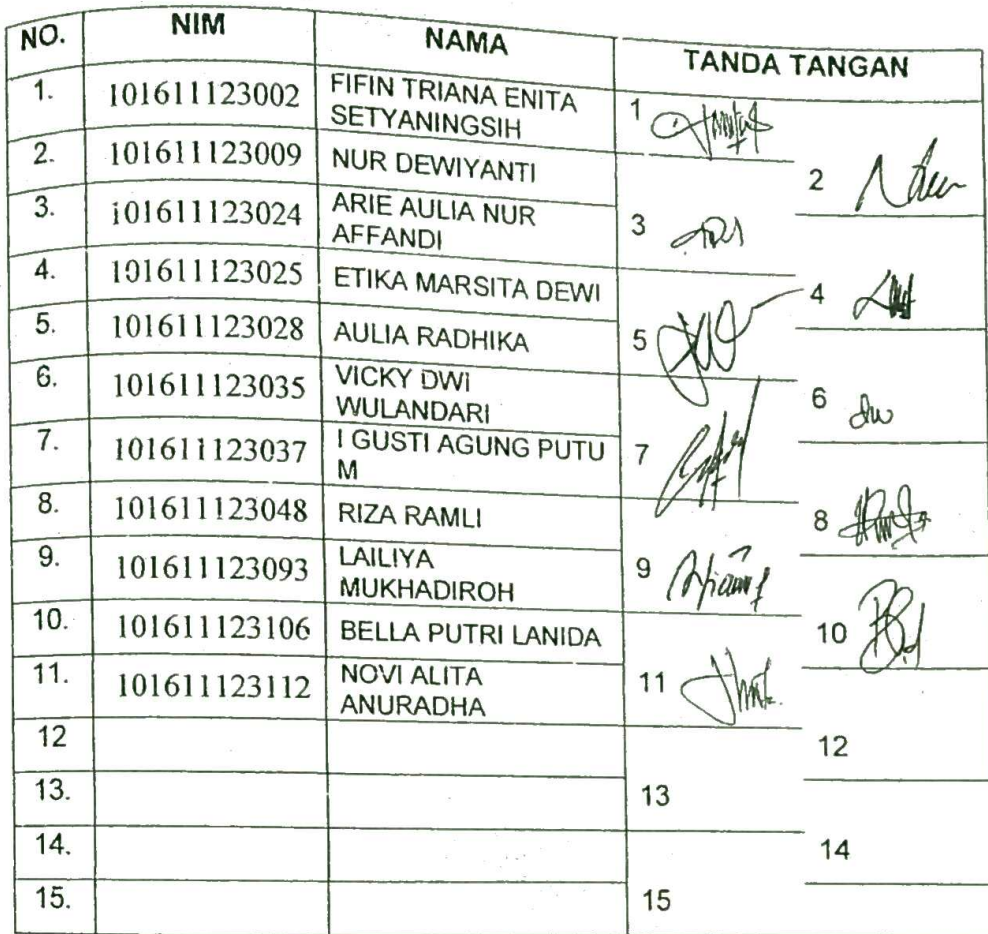 NO. NIM NAMA TANDA TANGAN
1. 101611123002 FIFIN TRIANA ENITA
SETYANINGSIH
1
2. 101611123009 NUR DEWIYANTI 2
3. 101611123024 ARIE AULIA NUR
AFFANDI
3
4. 101611123025 ETIKA MARSITA DEWI 4
5. 101611123028 AULIA RADHIKA 5
6. 101611123035 VICKY DWI
WULANDARI
6
7. 101611123037 I GUSTI AGUNG PUTU
M
7
8. 101611123048 RIZA RAMLI 8
9. 101611123093 LAILIYA
MUKHADIROH
9
10. 101611123106 BELLA PUTRI LANIDA 10
11. 101611123112 NOVI ALITA
ANURADHA
11
12 12
13. 13
14. 14
15. 15